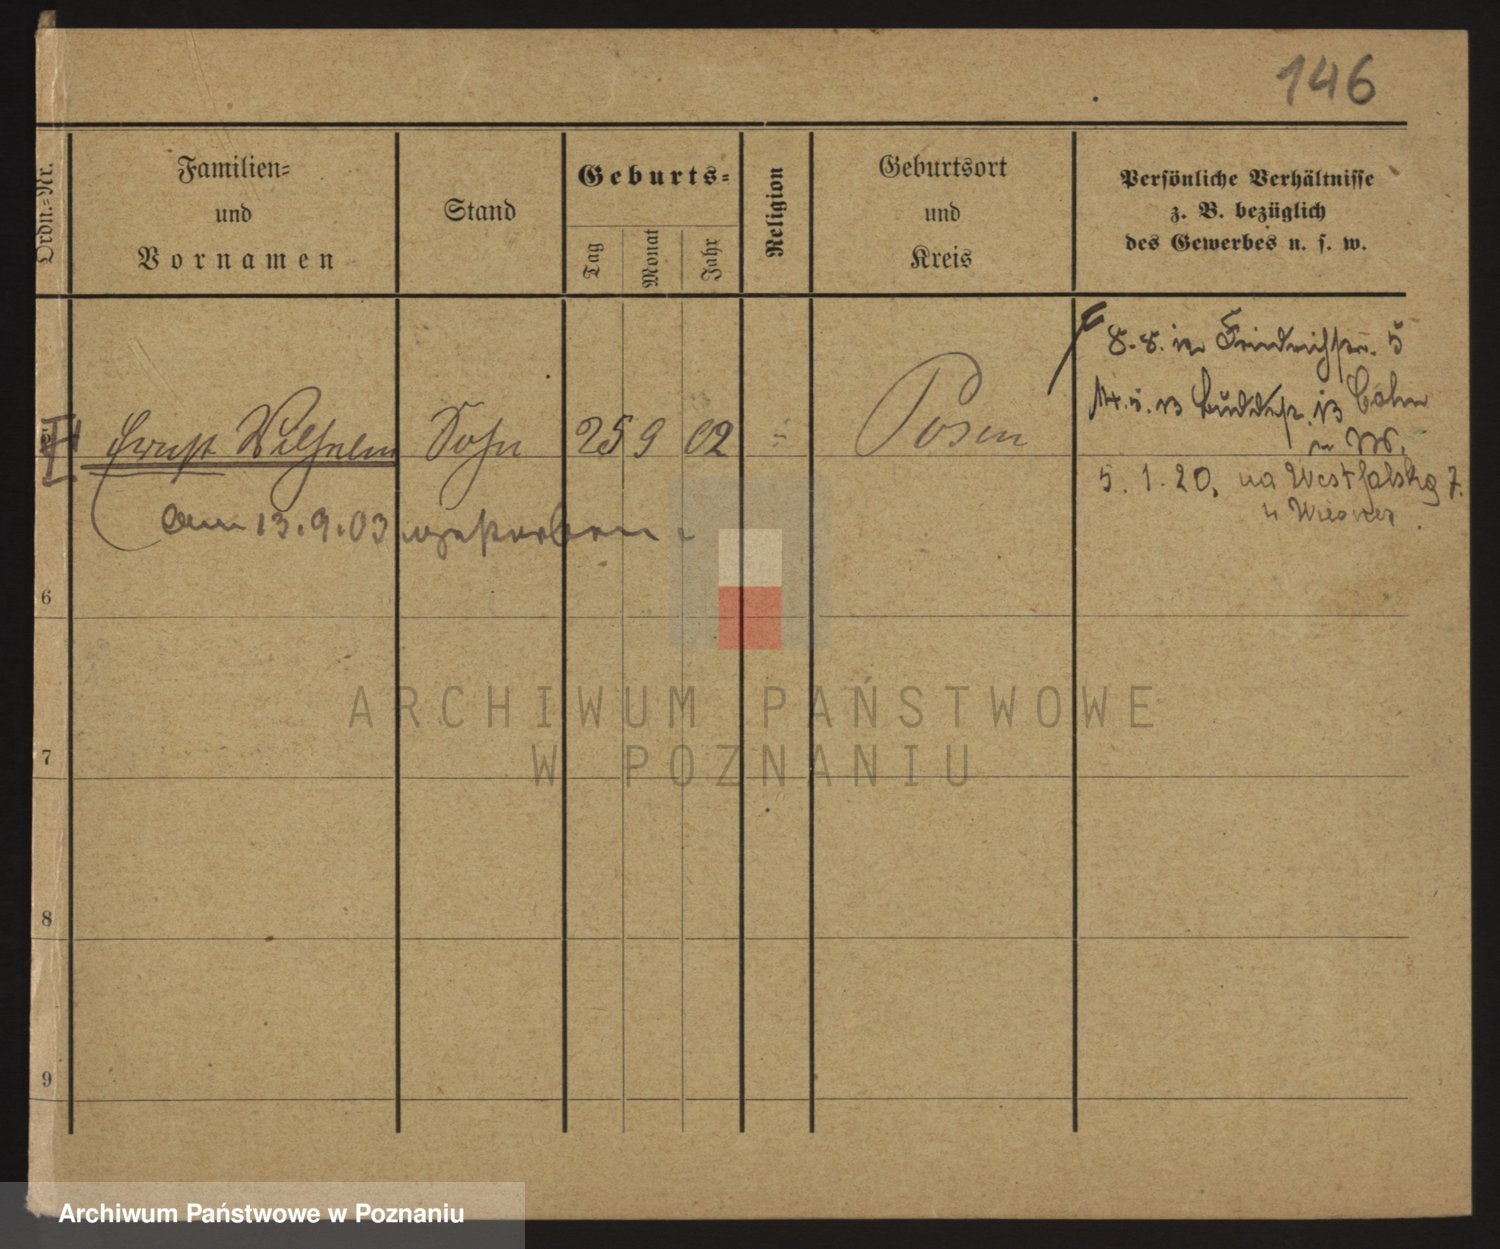 146
Ordn.-Nr.
Familien-
und
Vornamen
Stand
Geburts-
Tag
Monat
Jahr
Religion
Geburtsort
und
Kreis
Persönliche Verhältnisse
z. B. bezüglich
des Gewerbes u. s. w.
8. 8. in Friedrichstr. 5
Ernst Wilhelm Sohn 25 9 02 Posen
5. 1. 20, na Westfalską 7.
am 13.9.03 gestorben.
6
7
8
9
ARCHIWUM PAŃSTWOWE
W POZNANIU
Archiwum Państwowe w Poznaniu